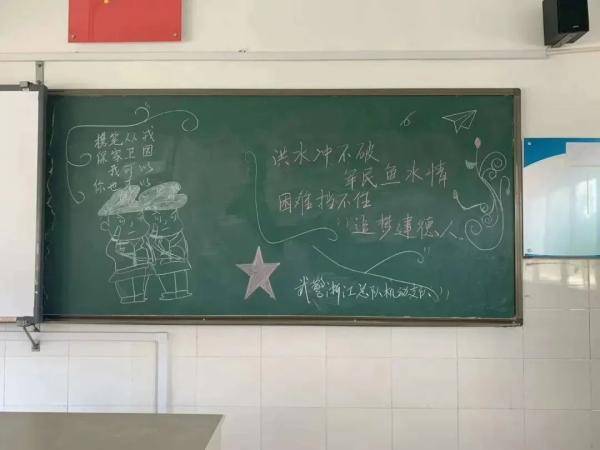 携笔从戎
保家卫国
我可以
你也可以
洪水冲不破
军民鱼水情
困难挡不住
追梦建德人
武警浙江总队机动支队